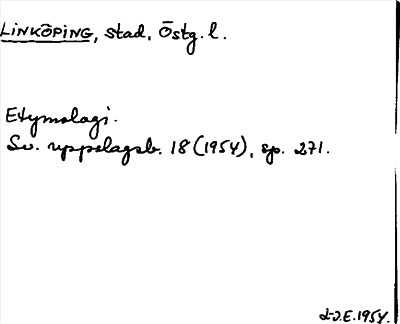 LINKÖPING, stad, Östg. l.
Etymologi.
Sv. uppslagsb. 18 (1954), sp. 271.
J.E. 1954.